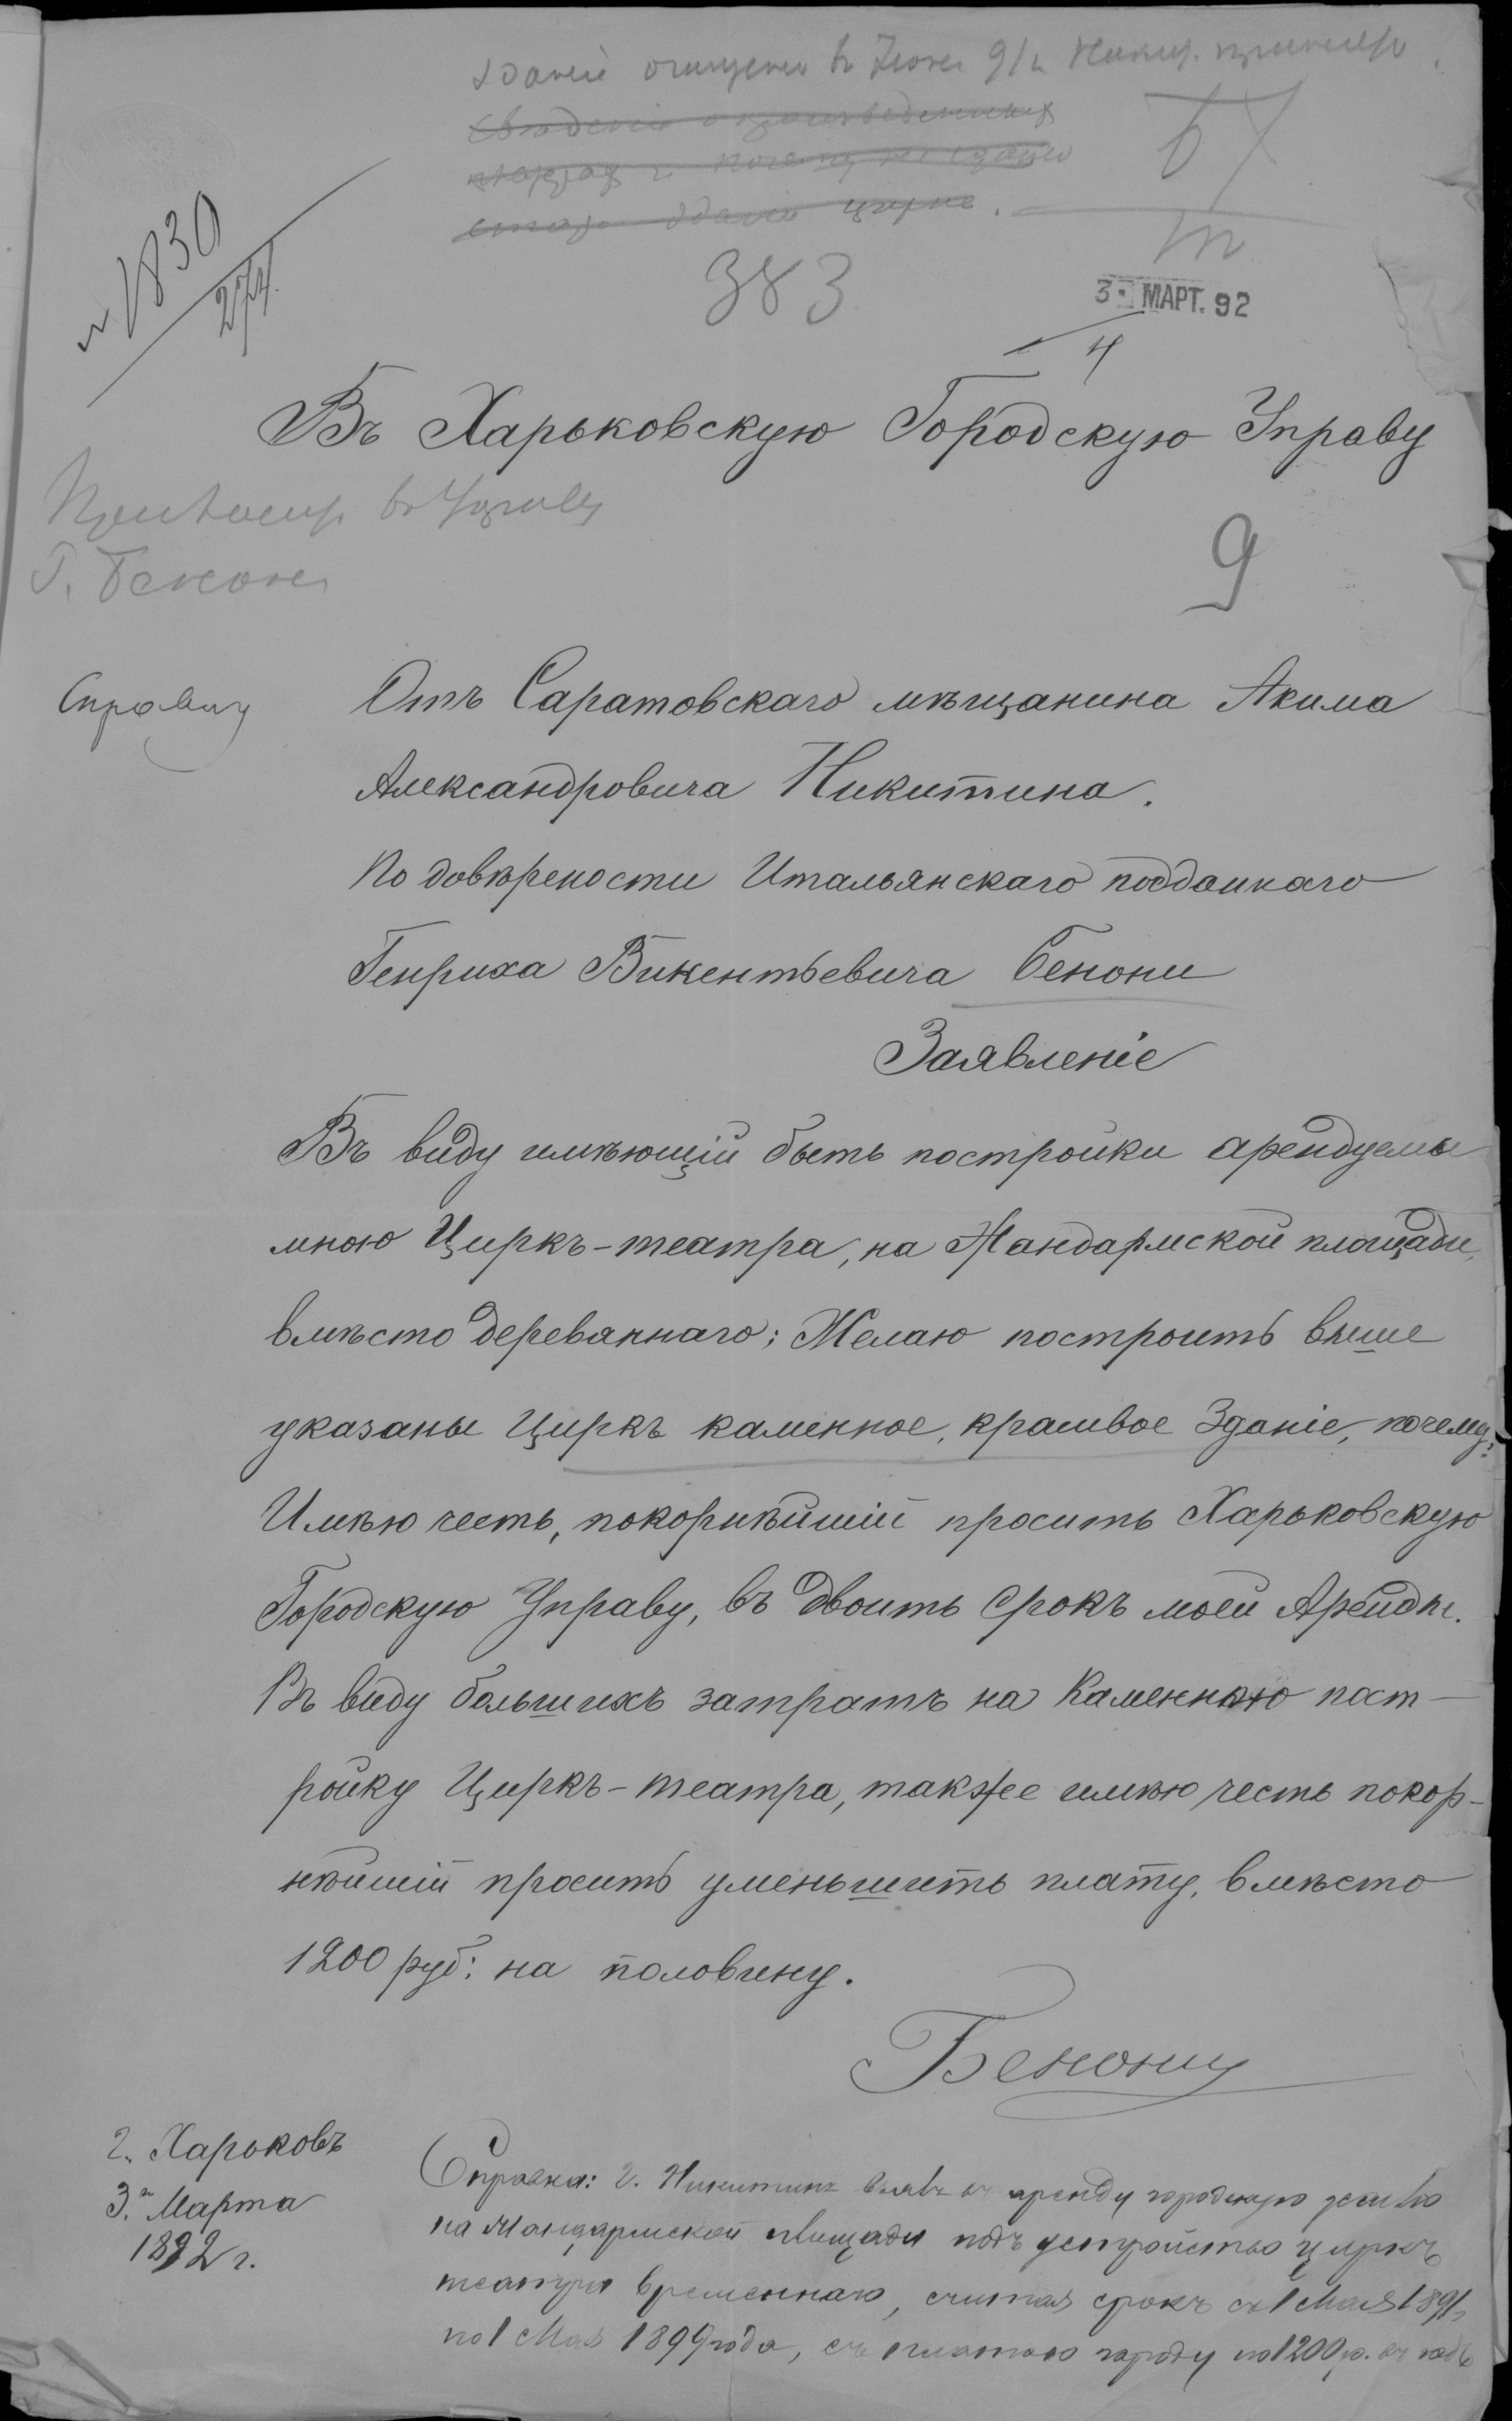 зданіе
383
3 МАРТ. 92
4
№ 1830
Въ Харьковскую Городскую Управу
Пригласить въ Управу
Г. Бенони
9
Справку
Отъ Саратовскаго мѣщанина Акима
Александровича Никитина.
по довѣрености Итальянскаго подданаго
Генриха Викентьевича Бенони
Заявленіе
Въ виду имѣющій быть постройки арендуемы
мною Циркъ-театра, на Жандармской площади,
вмѣсто деревяннаго; Желаю построить выше
указаны Циркъ каменное, красивое Зданіе, почему;
Имѣю честь, покорнѣйшій просить Харьковскую
Городскую Управу, въ двоить срокъ моей Аренды.
Въ виду большихъ затратъ на Каменною пост-
ройку Циркъ-театра, также имѣю честь покор-
нѣйшій просить уменьшить плату, вмѣсто
1200 руб: на половину.
Бенони
г. Харьковъ
3.го Марта
1892 г.
Справка: г. Никитинъ взялъ въ аренду городскую землю
на Жандармской площади подъ устройство циркъ
театра временнаго, считая срокъ съ 1 Мая 1891
по 1 Мая 1899 года, съ платою городу по 1200 р. въ годъ